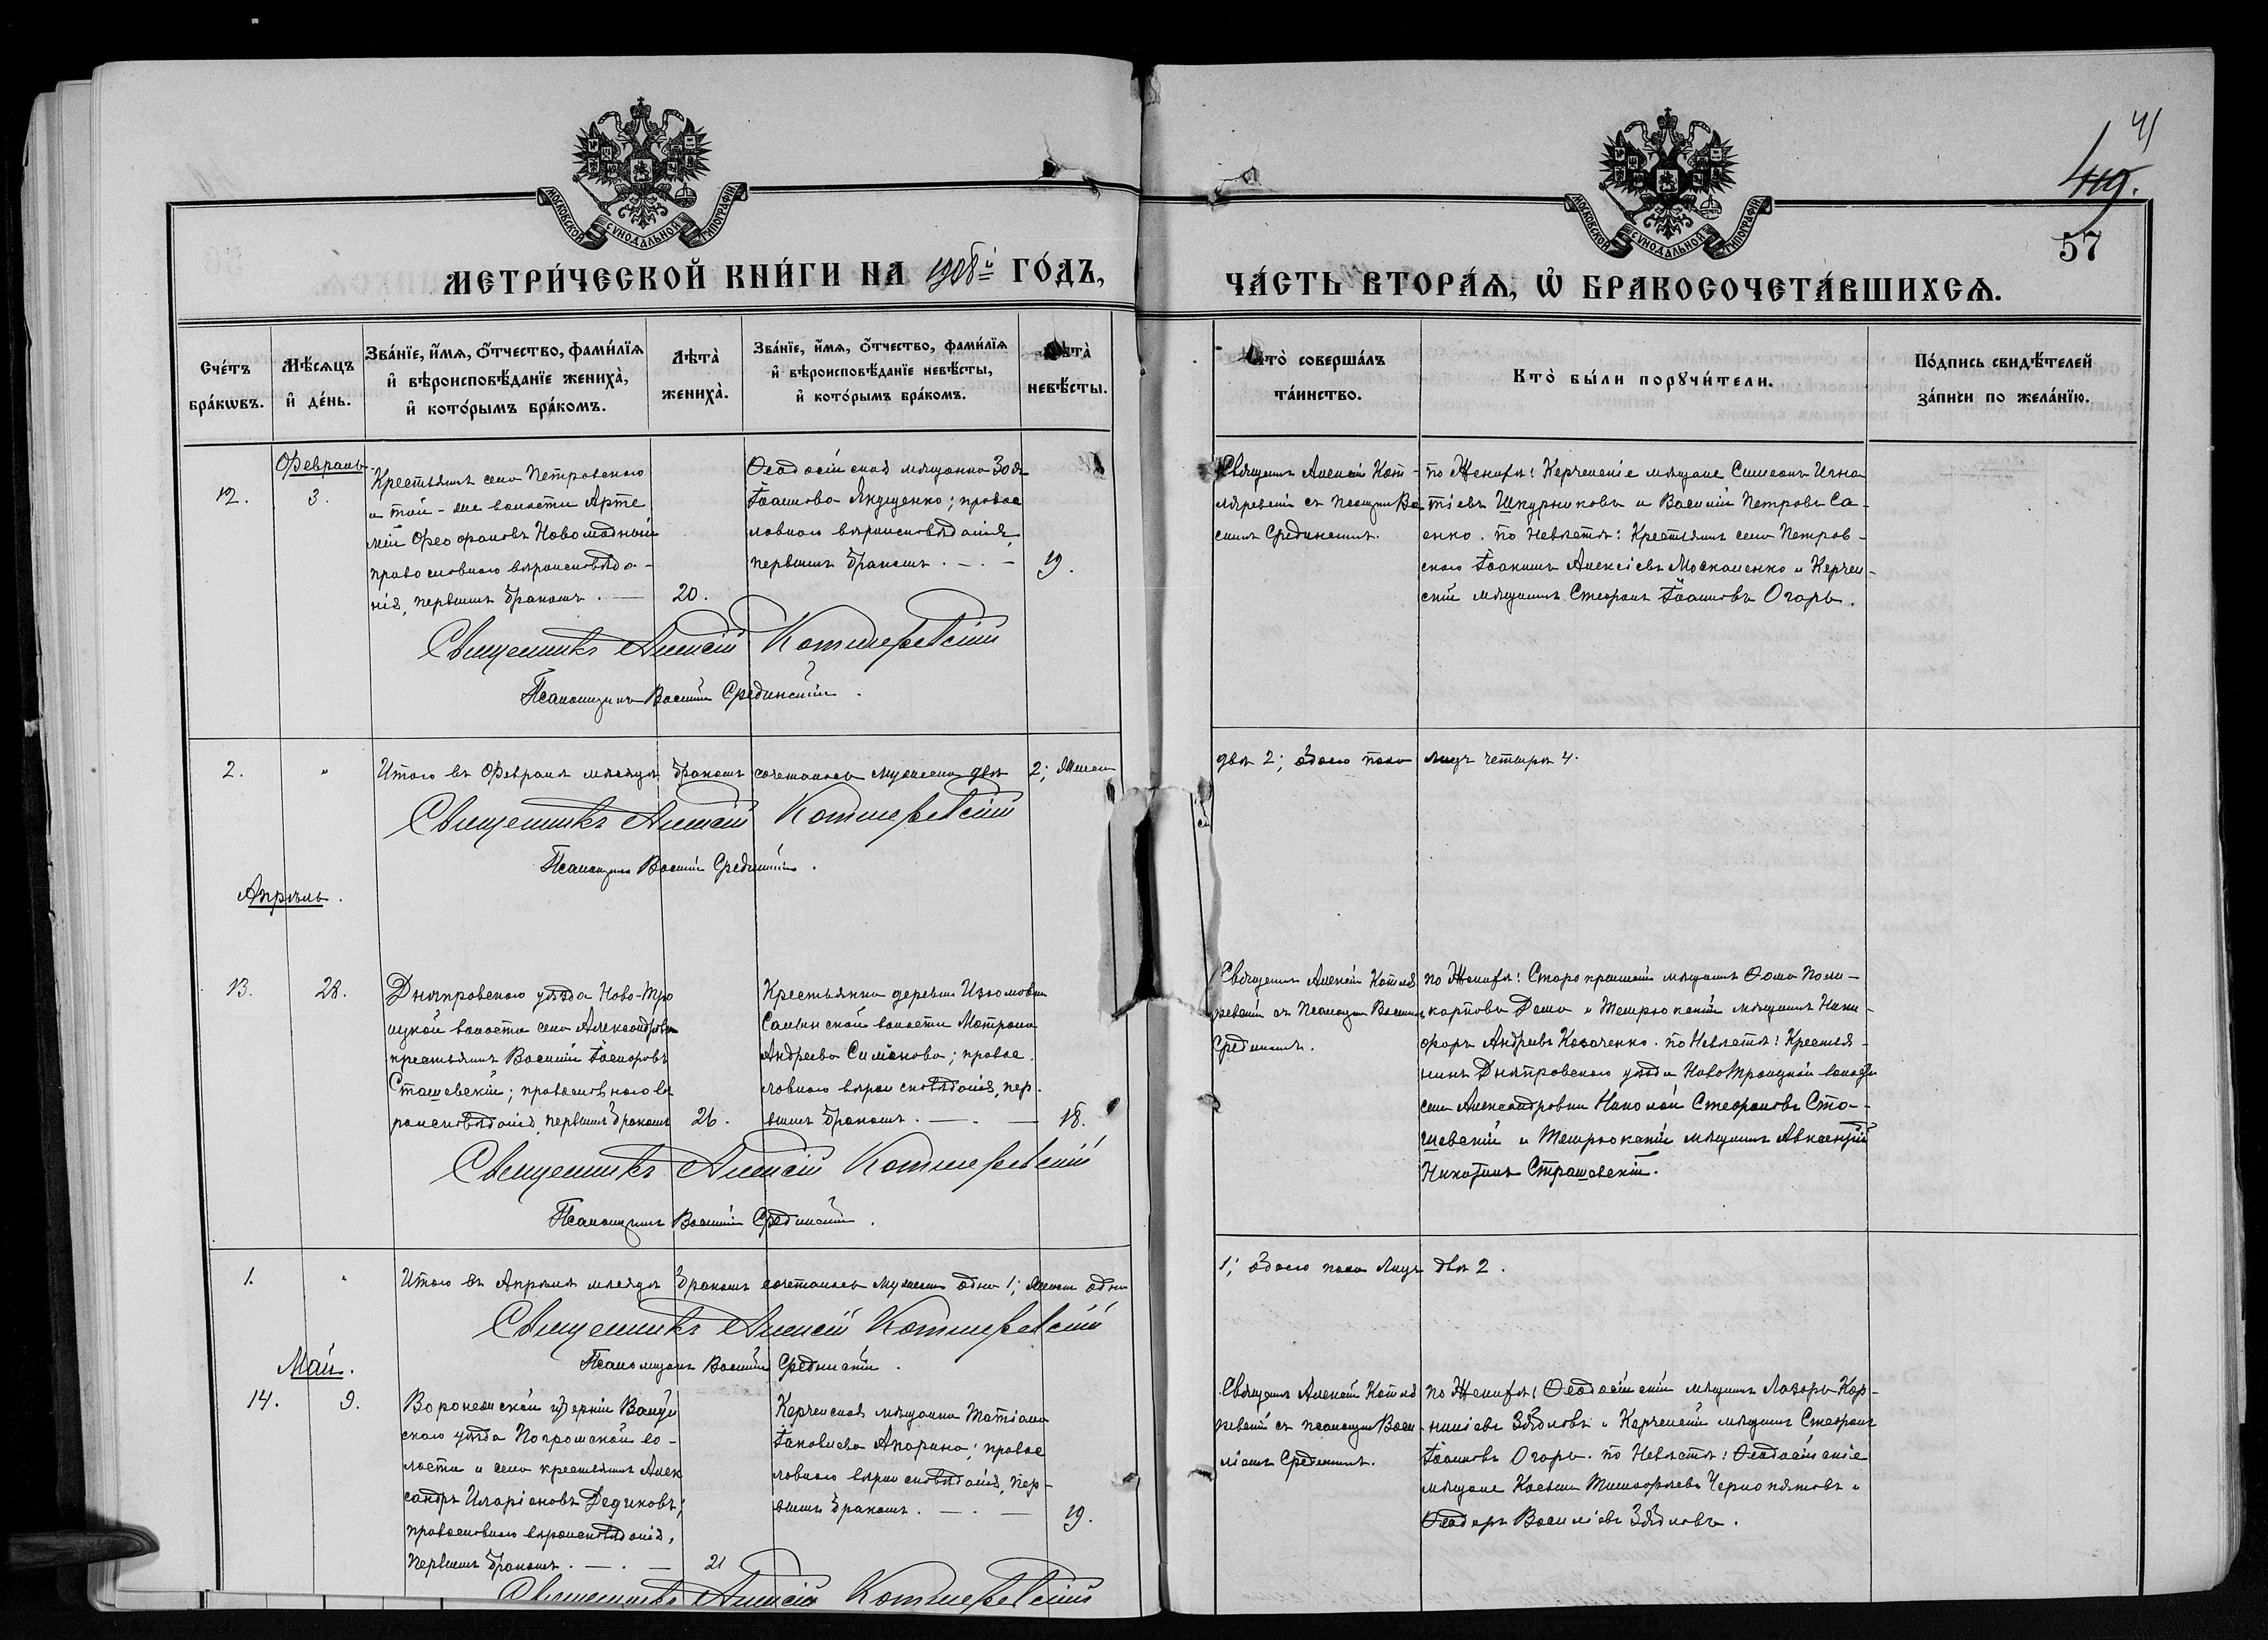 41
119.
57
МОСКОВСКОЙ СѴНОДАЛЬНОЙ ТИПОГРАФІИ
МОСКОВСКОЙ СѴНОДАЛЬНОЙ ТИПОГРАФІИ
МЕТРИ́ЧЕСКОЙ КНИ́ГИ НА 1908й ГО́ДЪ,
ЧА́СТЬ ВТОРА́Ѧ, Ѽ БРАКОСОЧЕТА́ВШИХСѦ.
Сче́тъ
бра́кѡвъ.
Мѣ́сѧцъ
и҆ де́нь.
Зва́нїе, и҆́мѧ, ѻ҆́тчество, фами́лїѧ
и҆ вѣроисповѣ́данїе жениха̀,
и҆ кото́рымъ бра́комъ.
Лѣта̀
жениха̀.
Зва́нїе, и҆́мѧ, ѻ҆́тчество, фами́лїѧ
и҆ вѣроисповѣ́данїе невѣ́сты,
и҆ кото́рымъ бра́комъ.
невѣ́сты.
Кто̀ соверша́лъ
та́инство.
Кто̀ бы́ли порꙋчи́тели.
По́дпись свидѣ́телей
за́писи по жела́нїю.
Февраль.
12.
3.
Крестьянинъ села Петровскаго
и той-же волости Арте
мій Феофановъ Новомодный
православнаго вѣроисповѣда-
нія, первымъ бракомъ. —
20.
Ѳеодосійская мѣщанка Зоя
Іоаннова Якущенко; правос
лавнаго вѣроисповѣданія,
первымъ бракомъ. —. —
19.
Священникъ Алексій Кот-
ляревскій съ псаломщ. Ва
силіемъ Срединскимъ.
по Женихѣ: Керченскіе мѣщане Симеонъ Игна
тіевъ Шкурниковъ и Василій Петровъ Са-
енко. по Невѣстѣ: Крестьянинъ села Петров-
скаго Іоакимъ Алексіевъ Москаленко и Керчен-
скій мѣщанинъ Стефанъ Іоанновъ Огарь.
Священникъ Алексій Котляревскій
Псаломщикъ Василій Срединскій.
2.
"
Итого въ Февралѣ мѣсяцѣ бракомъ сочеталось мужеска два 2; женска
два 2; обоего пола лицъ четыре 4.
Священникъ Алексій Котляревскій
Псаломщикъ Василій Срединскій.
Апрѣль.
13.
28.
Днѣпровскаго уѣзда Ново-Тро
ицкой волости села Александровки
крестьянинъ Василій
Сташевскій; православнаго вѣ
роисповѣданія, первымъ бракомъ
26.
Крестьянка деревни Изюмовки
Салынской волости Матрона
Андреева Симонова; правос
лавнаго вѣроисповѣданія, пер-
вымъ бракомъ. —. —
18.
Священникъ Алексій Котля
ревскій съ Псаломщ. Василіемъ
Срединскимъ.
по Женихѣ: Старокрымскій мѣщанинъ Ѳома Поли-
карповъ Дема и Темрюкскій мѣщанинъ Ники-
форъ Андреевъ Козаченко. по Невѣстѣ: Крестья-
нинъ Днѣпровскаго уѣзда НовоТроицкой волости
села Александровки Николай Стефановъ Ста-
шевскій и Темрюкскій мѣщанинъ Авксентій
Никитинъ Страшевскій.
Священникъ Алексій Котляревскій
Псаломщикъ Василій Срединскій.
1.
"
Итого въ Апрѣлѣ мѣсяцѣ бракомъ сочеталось мужеска одно 1; женска одно
1; обоего пола лицъ два 2.
Священникъ Алексій Котляревскій
Псаломщикъ Василій Срединскій.
Май.
14.
9.
Воронежской губерніи Валуй
скаго уѣзда Погромской во-
лости и села крестьянинъ Алек
сандръ Иларіоновъ Дедиковъ;
православнаго вѣроисповѣданія,
первымъ бракомъ. —. —
21
Керченская мѣщанка Татіана
Іаковлева Апарина; правос
лавнаго вѣроисповѣданія, пер-
вымъ бракомъ. —. —
19.
Священникъ Алексій Котля
ревскій съ псаломщ. Васи-
ліемъ Срединскимъ.
по Женихѣ: Ѳеодосійскій мѣщанинъ Лазарь Кор-
ниліевъ Зябловъ и Керченскій мѣщанинъ Стефанъ
Іоанновъ Огарь. по Невѣстѣ: Ѳеодосійскіе
мѣщане Косьма Тимофеевъ Чернопятовъ и
Ѳеодоръ Василіевъ Зябловъ.
Священникъ Алексій Котляревскій